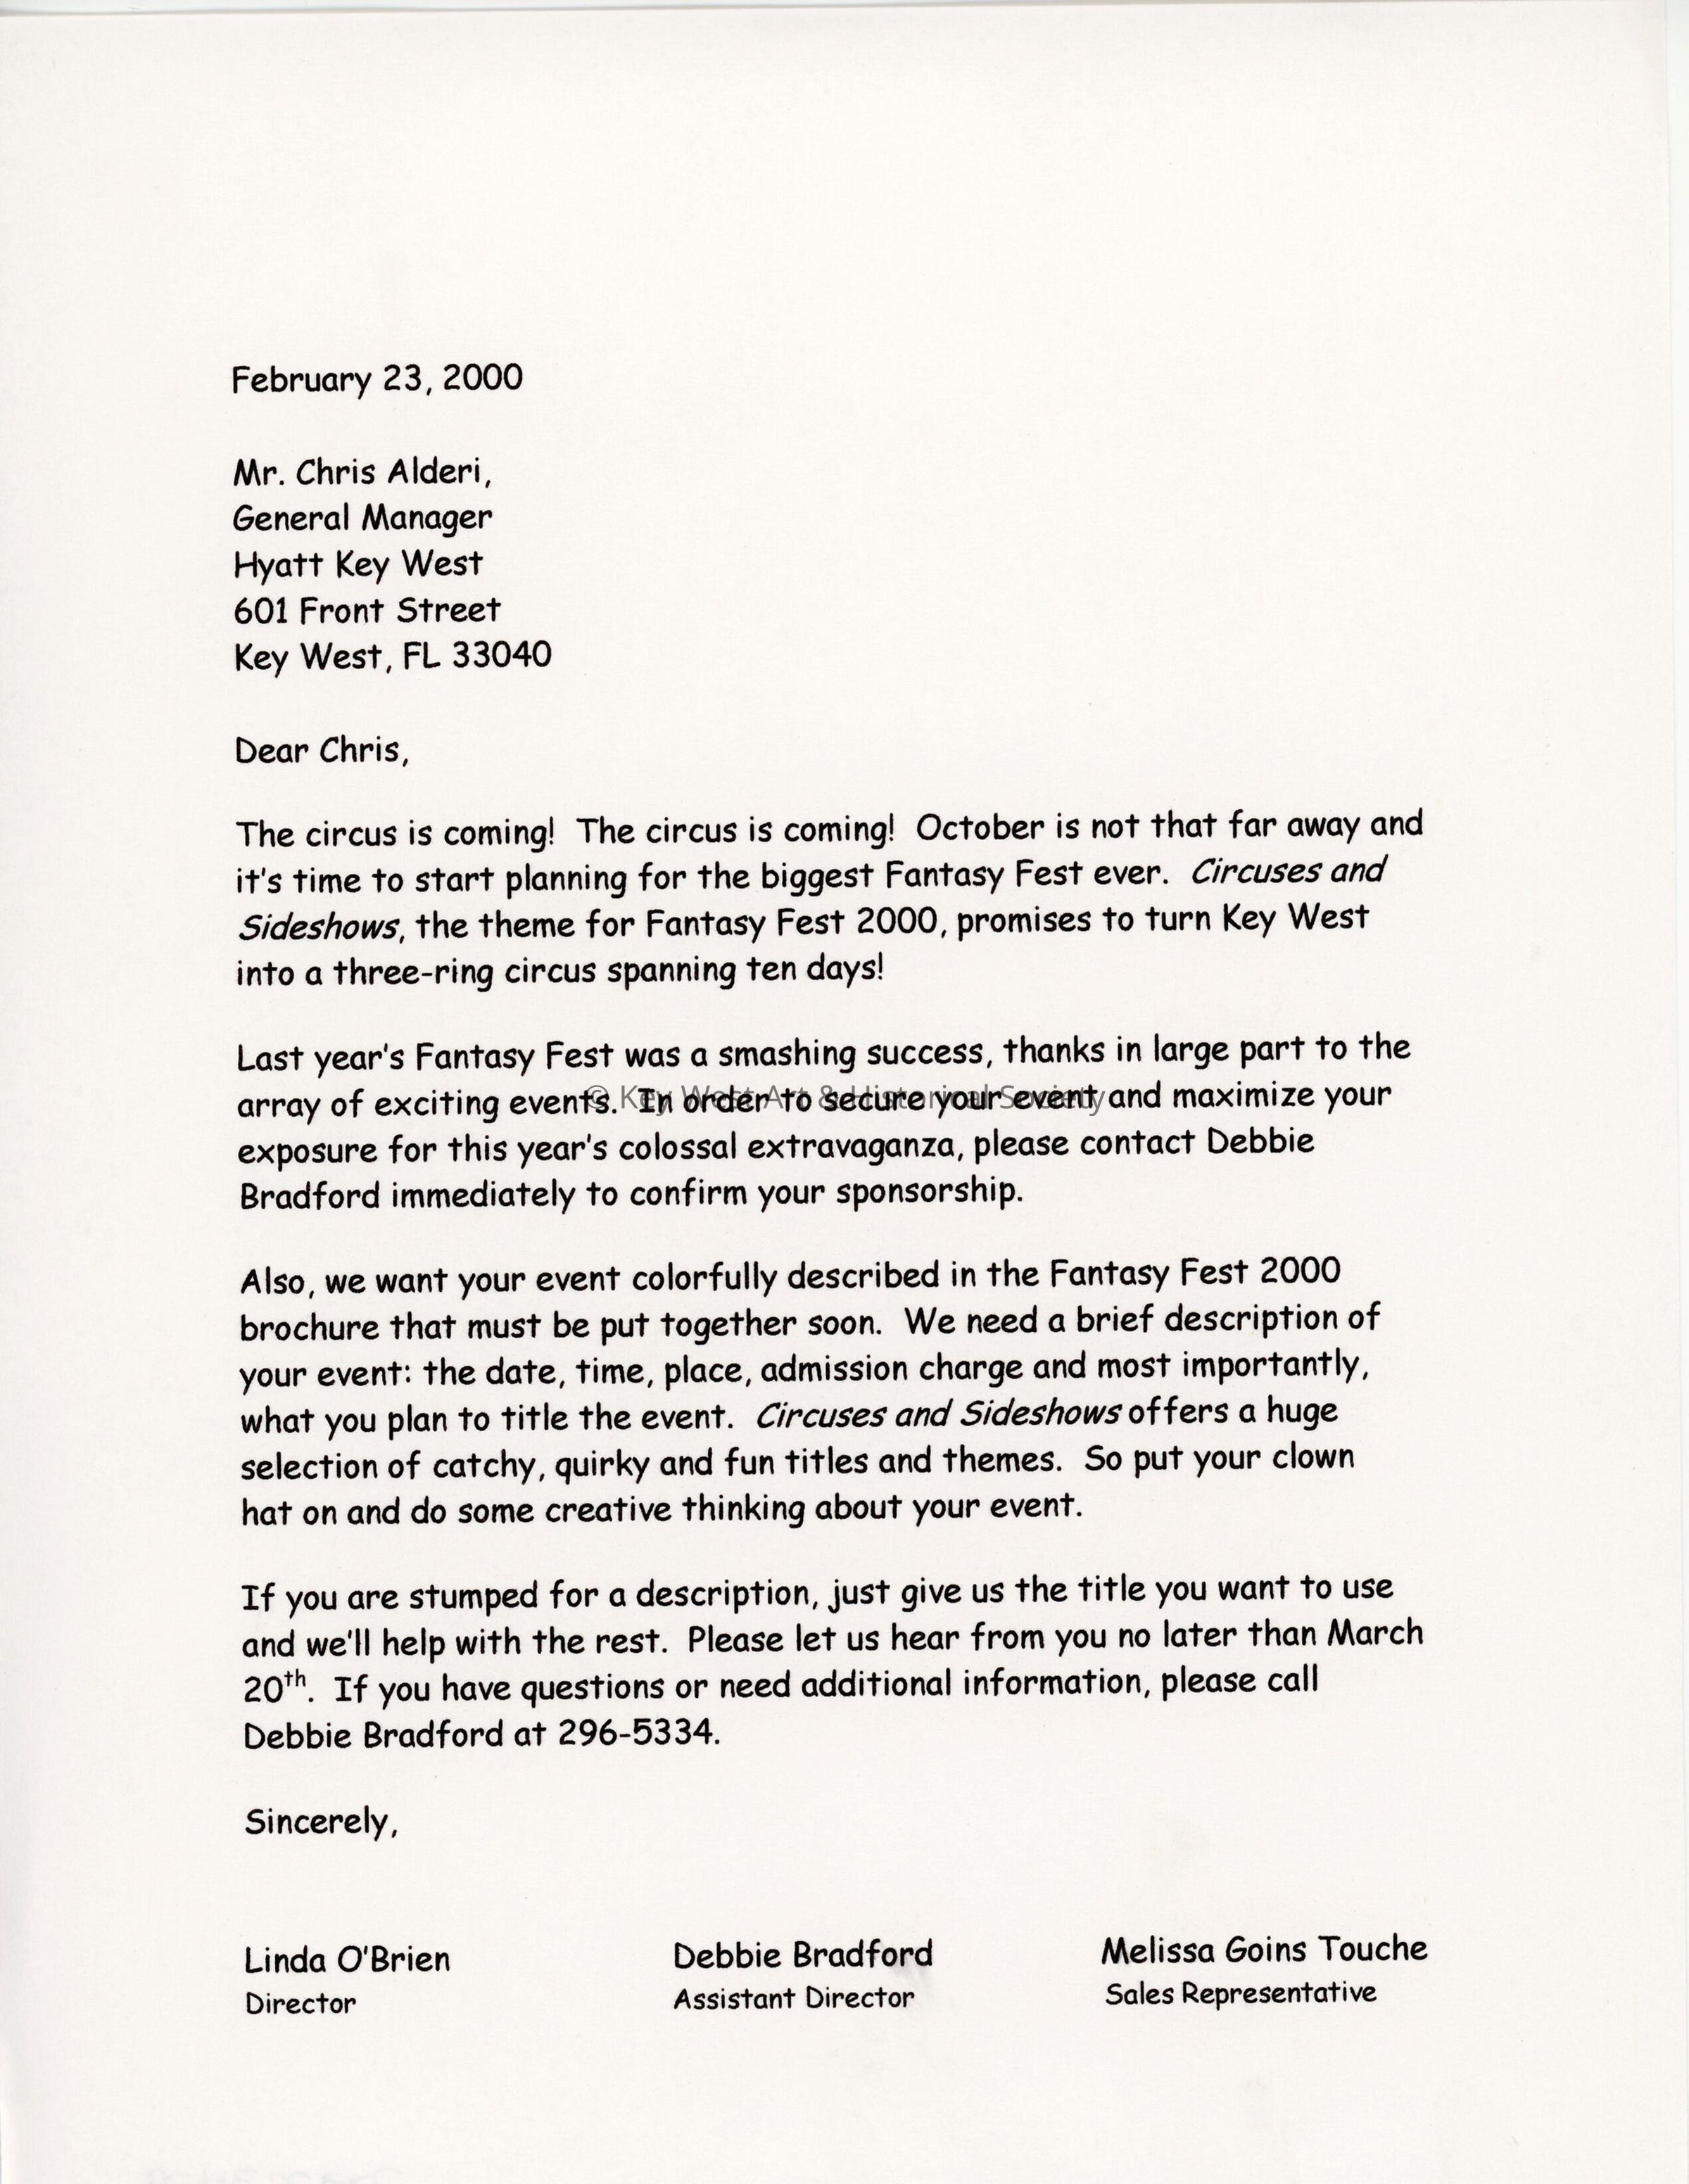 February 23, 2000
Mr. Chris Alderi,
General Manager
Hyatt Key West
601 Front Street
Key West, FL 33040
Dear Chris,
The circus is coming!  The circus is coming!  October is not that far away and
it's time to start planning for the biggest Fantasy Fest ever.  Circuses and
Sideshows, the theme for Fantasy Fest 2000, promises to turn Key West
into a three-ring circus spanning ten days!
Last year's Fantasy Fest was a smashing success, thanks in large part to the
array of exciting events.  In order to secure your event and maximize your
© Key West Art & Historical Society
exposure for this year's colossal extravaganza, please contact Debbie
Bradford immediately to confirm your sponsorship.
Also, we want your event colorfully described in the Fantasy Fest 2000
brochure that must be put together soon.  We need a brief description of
your event: the date, time, place, admission charge and most importantly,
what you plan to title the event.  Circuses and Sideshows offers a huge
selection of catchy, quirky and fun titles and themes.  So put your clown
hat on and do some creative thinking about your event.
If you are stumped for a description, just give us the title you want to use
and we'll help with the rest.  Please let us hear from you no later than March
20th.  If you have questions or need additional information, please call
Debbie Bradford at 296-5334.
Sincerely,
Linda O'Brien Debbie Bradford Melissa Goins Touche
Director Assistant Director Sales Representative